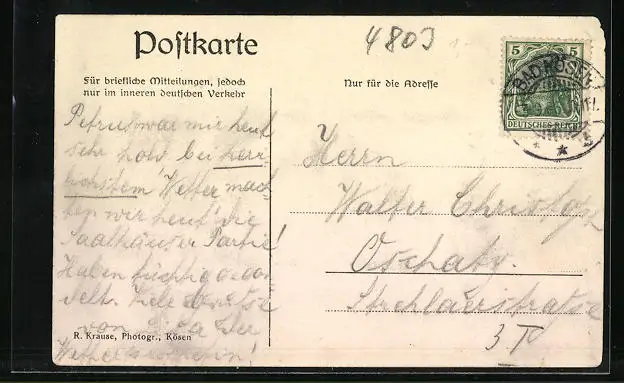 Postkarte
4803
Für briefliche Mitteilungen, jedoch
nur im inneren deutschen Verkehr
Nur für die Adresse
5 5
DEUTSCHES REICH
BAD KÖSEN
Petrus war mir heut
sehr hold bei herr
lichstem Wetter mach
ten wir heut die
Saalhäuser Partie!
Haben tüchtig gegon
delt. Viele Grüsse
von
Herrn
Walter
Oschatz.
Strehlaerstrasse
3 II
R. Krause, Photogr., Kösen